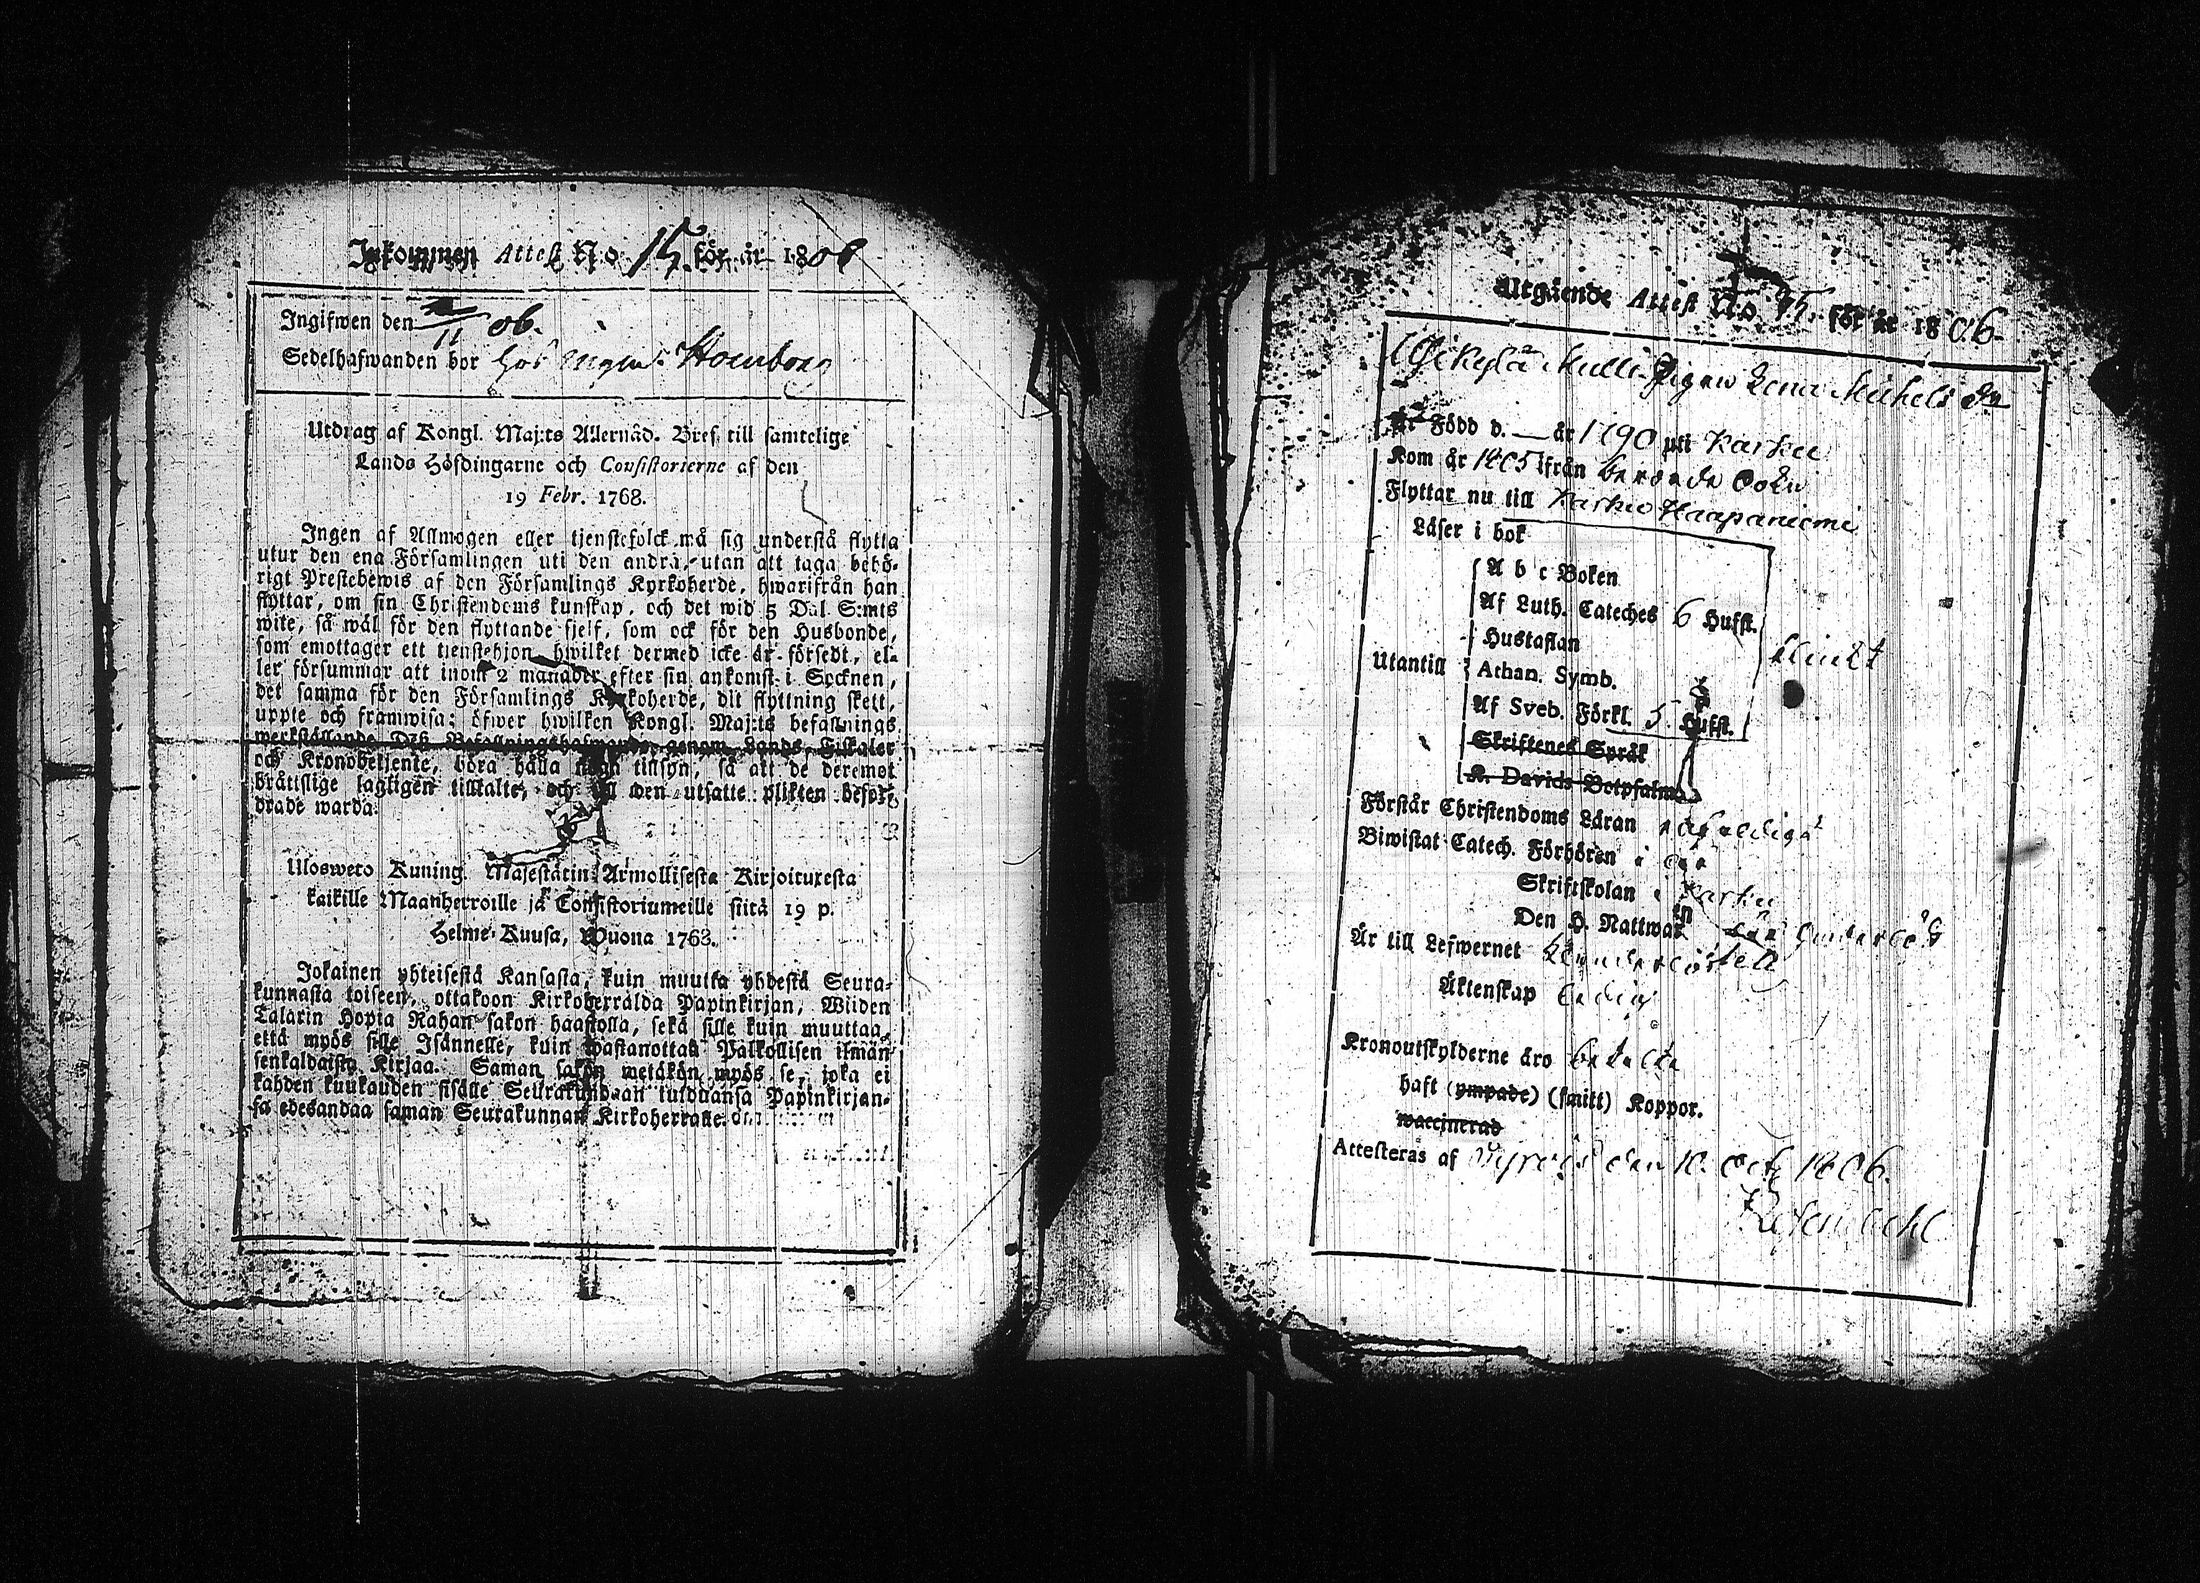 Inkommen Attest No 15. för år 1806
Ingifwen den 2/11 06.
Sedelhafwanden bor hos
Utdrag af Kongl. Maj:ts Allernåd. Bref till samtelige
Lands Höfdingarne och Consistorierne af den
19 Febr. 1768.
Ingen af Allmogen eller tjenstefolck må sig understå flytta
utur den ena Församlingen uti den andra, utan att taga behö-
rigt Prestebewis af den Församlings Kyrkoherde, hwarifrån han
flyttar, om sin Christendoms kunskap, och det wid 5 Dal. S:mts
wite, så wäl för den flyttande sjelf, som ock för den Husbonde,
som emottager ett tienstehjon, hwilket dermed icke är försedt, el-
ler försummar att inom 2 månader efter sin ankomst i Socknen,
det samma för den Församlings Kyrkoherde, dit flyttning skett,
uppte och framwisa; öfwer hwilken Kongl. Maj:ts befallnings
werkställande Dess Befallningshafwande genom Lands Fiskaler
och Kronobetjente, böra hålla noga tillsyn, så att de deremot
bråttslige lagligen tilltalte, och till den utsatte plikten befor-
drade warda.
Ulosweto Kuning. Majestätin Armollisesta Kirjoituxesta
kaikille Maanherroille ja Consistoriumeille siitä 19 p.
Helme-Kuusa, Wuona 1768.
Jokainen yhteisestä Kansasta, kuin muutta yhdestä Seura-
kunnasta toiseen, ottakoon Kirkoherralda Papinkirjan, Wiiden
Talarin Hopia Rahan sakon haastolla, sekä sille kuin muuttaa,
että myös sille Isännelle, kuin wastanottaa Palkollisen ilman
senkaldaista Kirjaa. Saman sakon wetäkön myös se, joka ei
kahden kuukauden sisälle Seurakundaan tulduansa Papinkirjan-
sa edesandaa saman Seurakunnan Kirkoherralle.
Utgående Attest No 75. för år 1806.
Pigan Lena Michels dr
Är Född d. — år 1790 uti Karkku
Kom år 1805 ifrån berörde Sokn
Flyttar nu till Karkku Haapaniemi
Läser i bok
A b c Boken
Af Luth. Cateches 6 Hufst.
Hustaflan
Utantill Athan. Symb.
Af Sveb. Förkl. 5 Hufst.
Skriftenes Språk
K. Davids Botpsalm.
Förstår Christendoms Läran enfaldigt
Biwistat Catech. Förhören i
Skriftskolan i Karkku
Den H. Nattwarden
Är till Lefwernet
Äktenskap ledig
Kronoutskylderne äro betalta
haft (ympade) (smitt) Koppor.
waccinerad
Attesteras af den 10. Octr 1806.